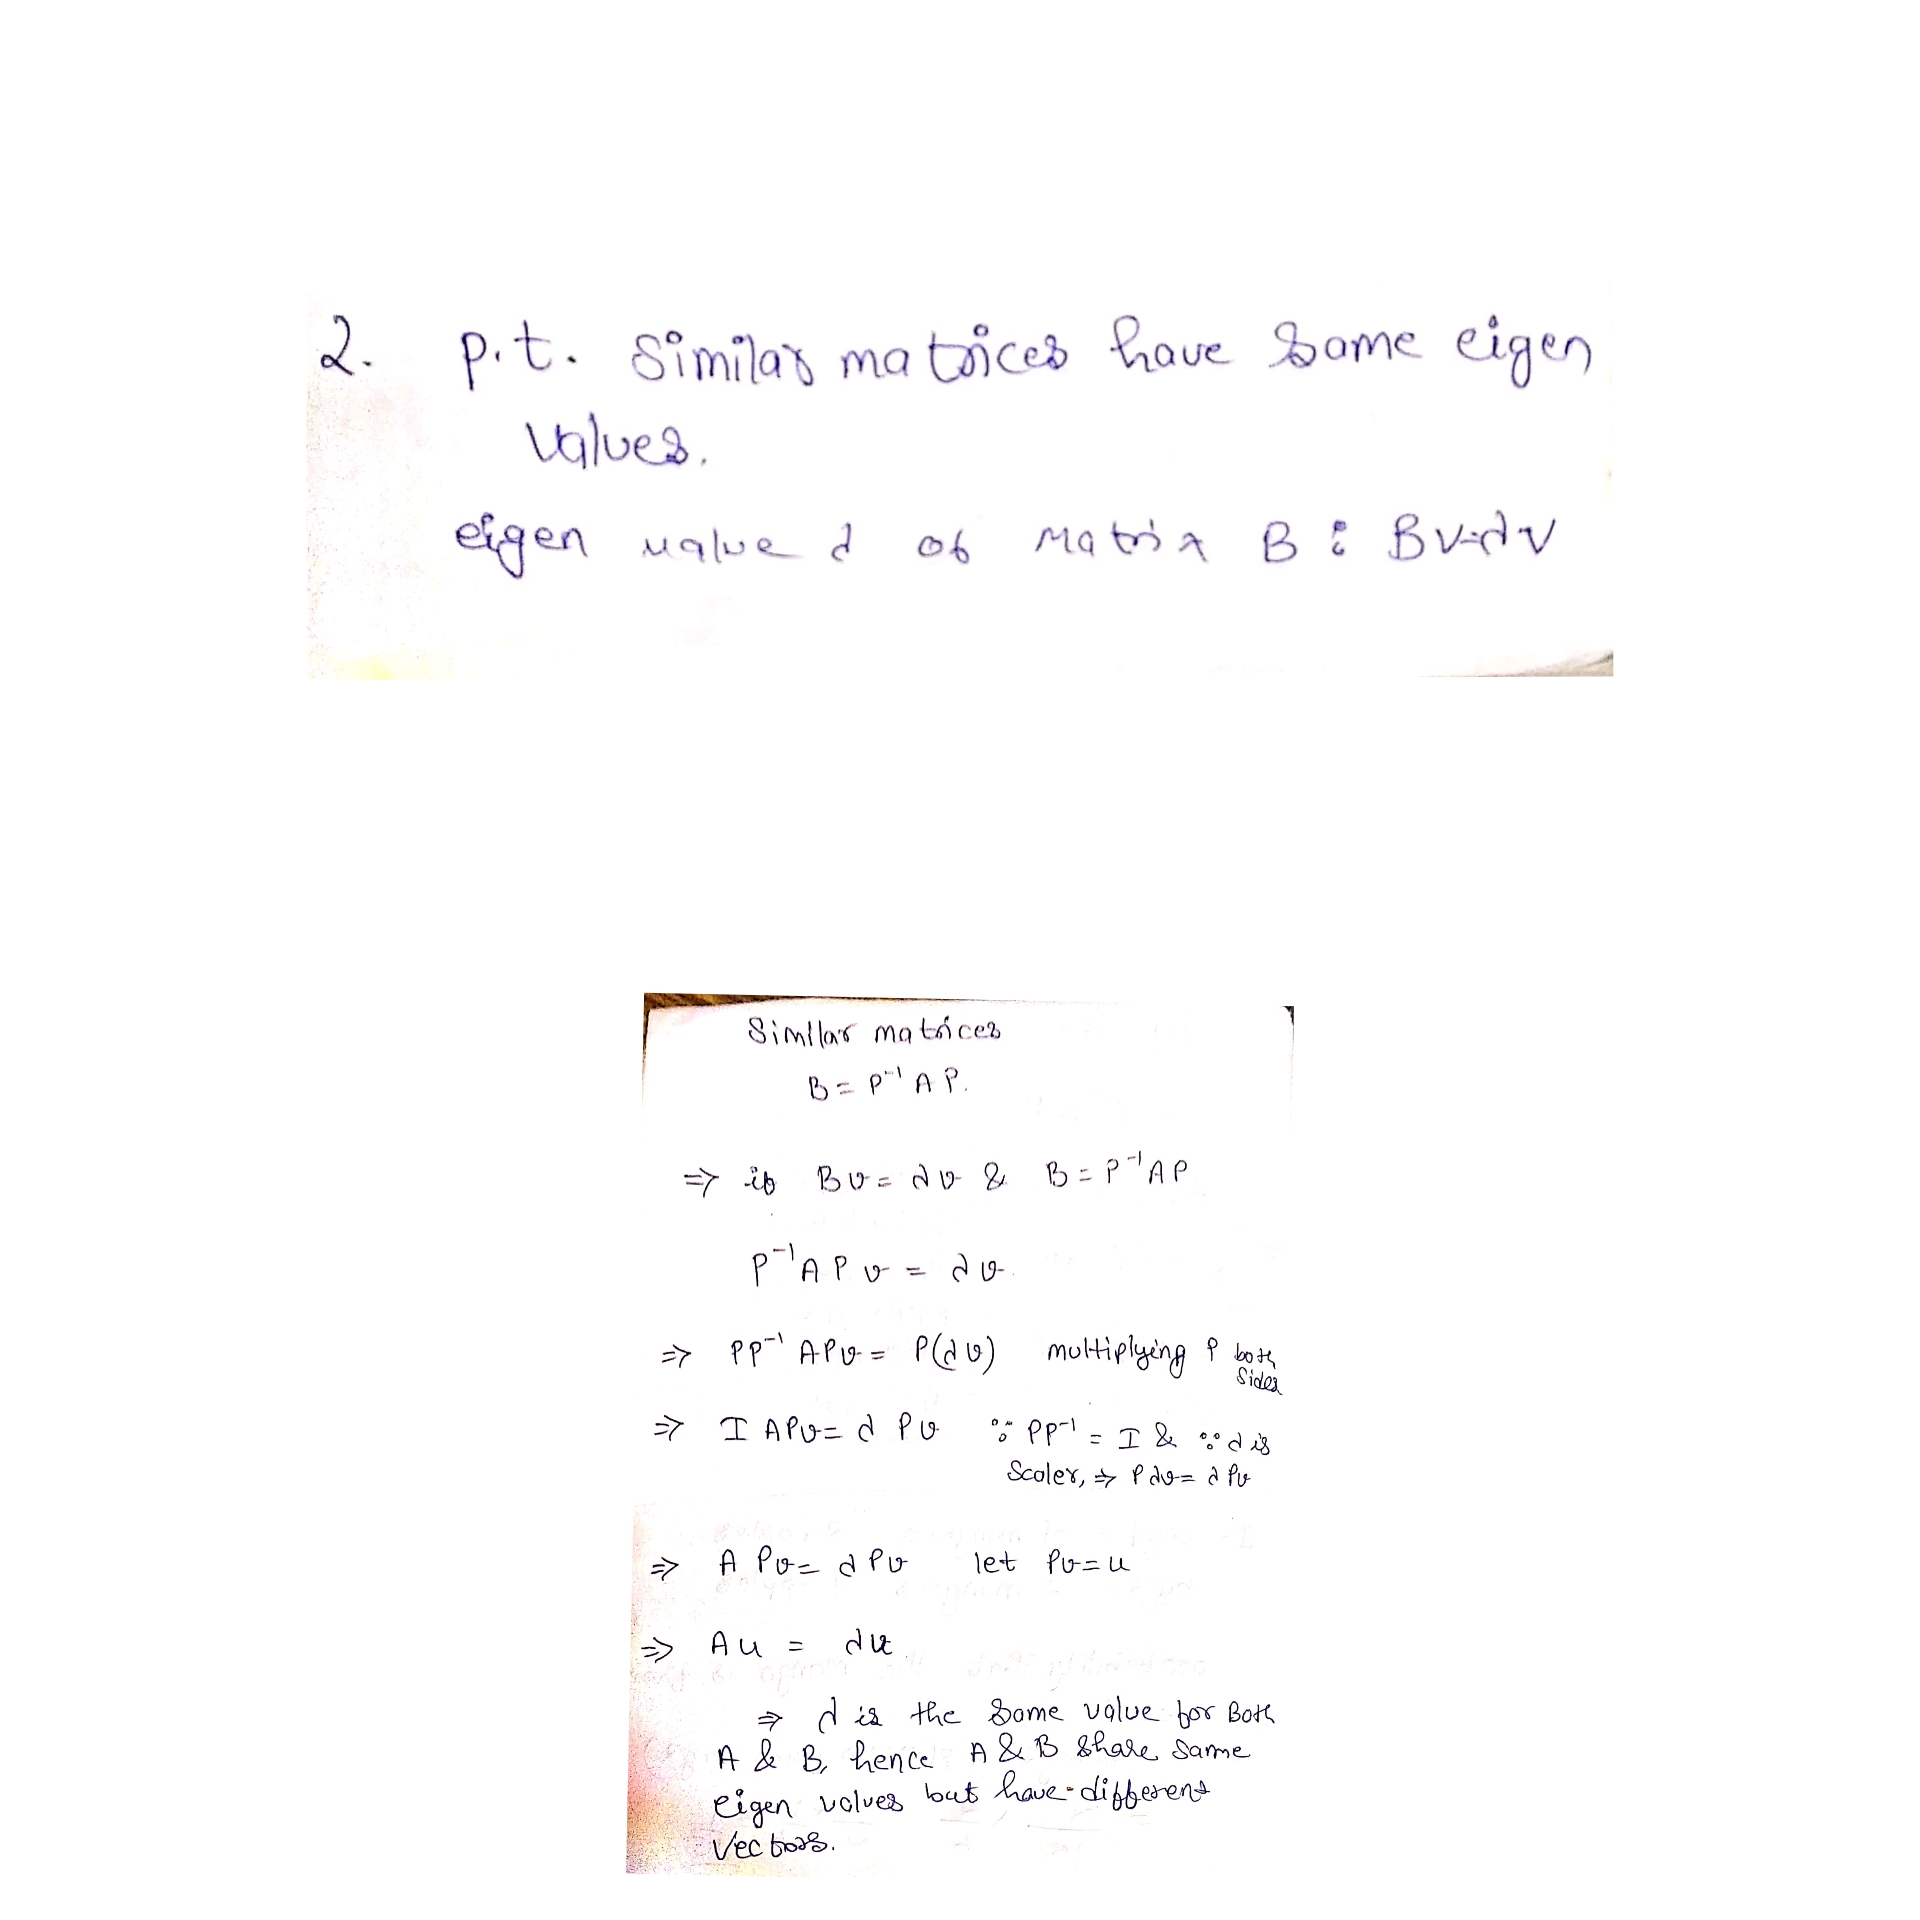 2. p.t. Similar matrices have same eigen
values.
eigen value λ of matrix B : Bv=λv
Similar matrices
B = P⁻¹ A P.
⇒ if Bv = λv & B = P⁻¹AP
P⁻¹ A P v = λv.
⇒ PP⁻¹ APv = P(λv) multiplying P both
sides
⇒ I APv = λ Pv ∵ PP⁻¹ = I & ∵ λ is
Scaler, ⇒ Pλv = λPv
⇒ A Pv = λPv let Pv = u
⇒ Au = λu
⇒ λ is the same value for Both
A & B, hence A & B share same
eigen values but have different
Vectors.